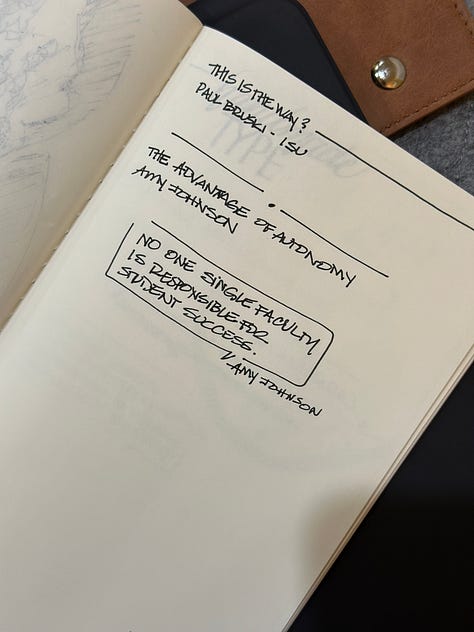 THIS IS THE WAY?
PAUL BRUSKI - ISU
THE ADVANTAGE OF AUTONOMY
AMY JOHNSON
NO ONE SINGLE FACULTY
IS RESPONSIBLE FOR
STUDENT SUCCESS.
AMY JOHNSON
TYPE